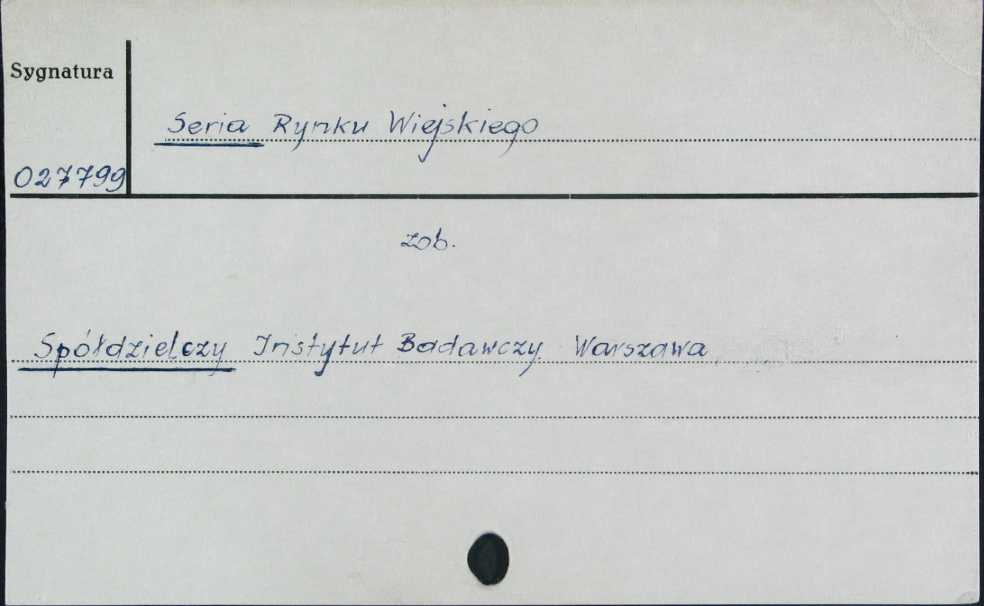 Sygnatura
Seria Rynku Wiejskiego
027799
zob.
Spółdzielczy Instytut Badawczy Warszawa